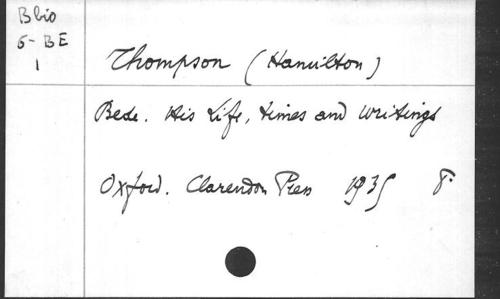 Bbio
5-BE
1
Thompson (Hamilton)
Bede. His Life, times and Writings
Oxford. Clarendon Press 1935 8°